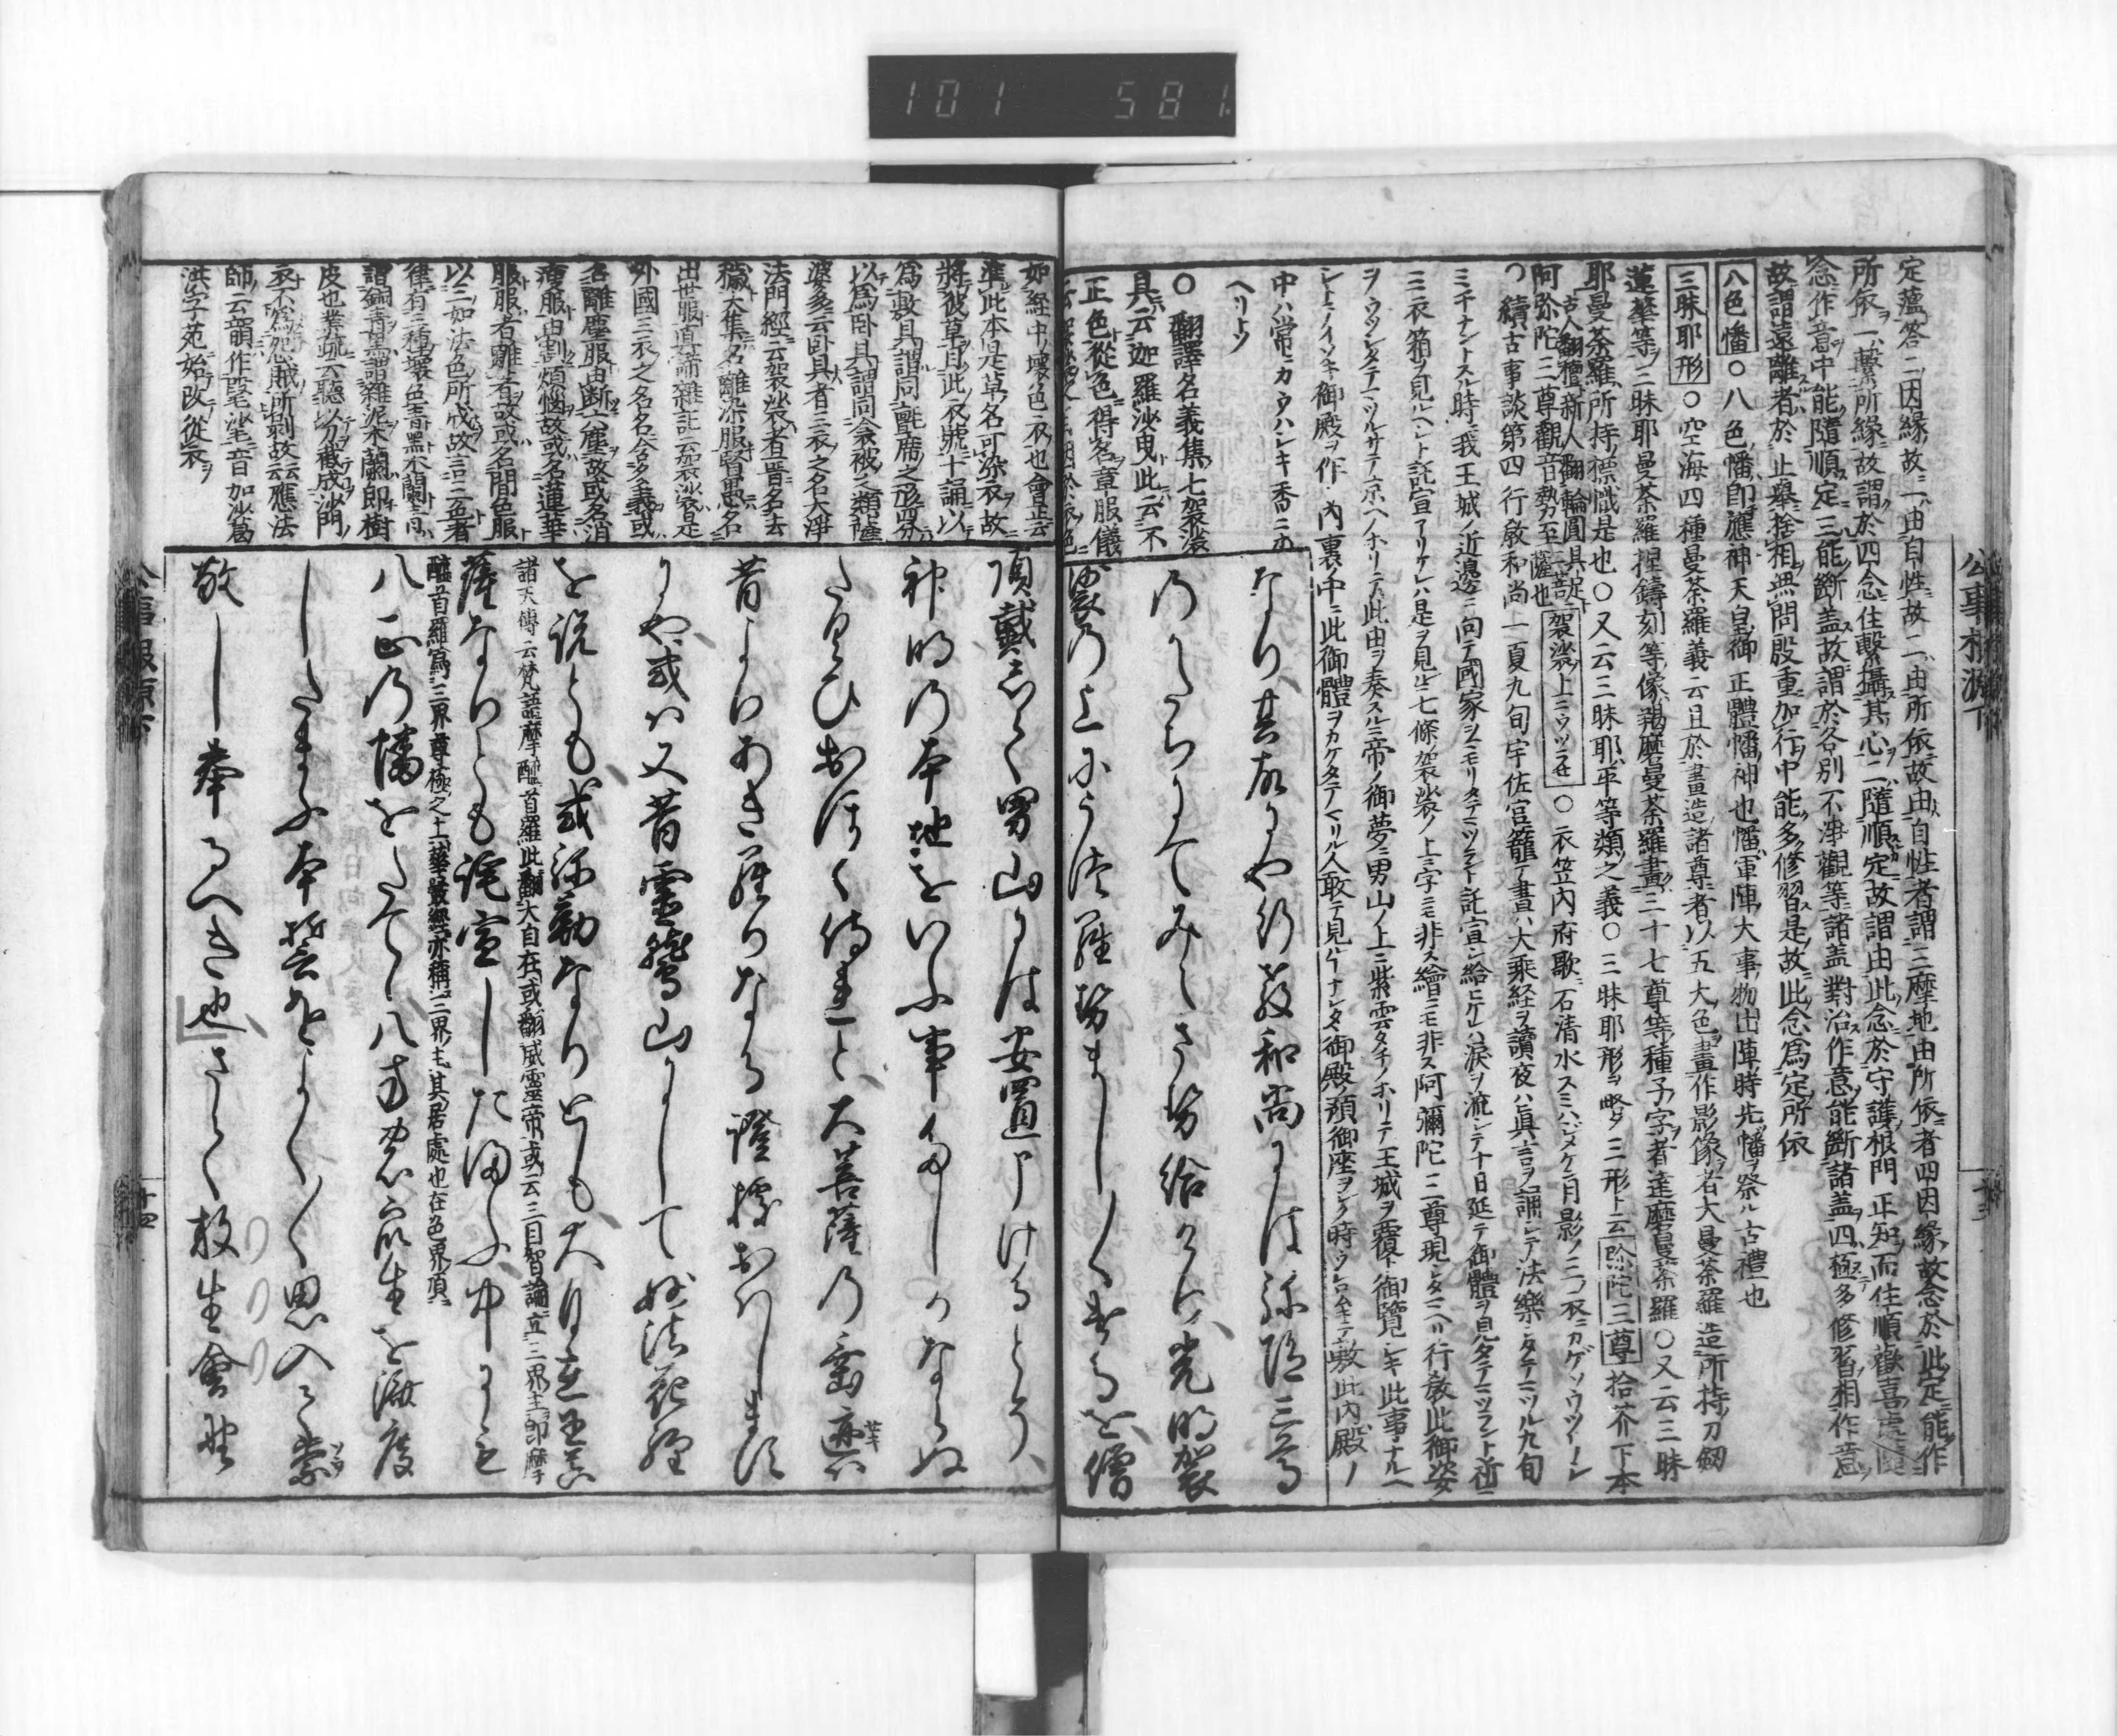 101 581
公事根源下
定蘊答二因縁故一由自性故二由所依故由自性者謂三摩地由所依者四因縁故念於此定能作
所依一繋所縁故謂於四念住繋攝其心二隨順定故謂由此念於守護根門正知而住順歡喜處隨
念作意中能隨順定三能斷盖故謂於各別不淨觀等諸盖對治作意能斷諸盖四極多修習相作意
故謂遠離者於止舉捨相無間殷重加行中能多修習是故此念爲定所依
八色幡○八色幡即應神天皇御正體幡神也幡軍陣大事物出陣時先幡ヲ祭ル古禮也
三昧耶形○空海四種曼荼羅義云且於畫造諸尊者以五大色畫作影像者大曼荼羅造所持刀劔
蓮華等三昧耶曼荼羅捏鑄刻等像羯磨曼荼羅畫三十七尊等種子字者達磨曼荼羅○又云三昧
耶曼荼羅所持標幟是也○又云三昧耶平等類之義○三昧耶形ヲ略メ三形ト云弥陀三尊拾芥下本
阿弥陀三尊觀音勢至
古人翻檀新人翻輪圓具足
袈裟ノ上ニウツラセ○衣笠内府歌石清水スミハジメケン月影ノ三ノ衣ニカゲソウツーレ
續古事談第四行敎和尚一夏九旬宇佐宮籠テ晝ハ大乘経ヲ讀夜ハ眞言ヲ誦シテ法樂シタテミツル九旬
ミチナントスル時我王城ノ近邊ニ向テ國家ヲミモリタテミツラント託宣シ給ヒケレハ涙ヲ流シテ十日延テ御體ヲ見タテミツラント祈ニ
三衣箱ヲ見ルヘシト託宣アリケレハ是ヲ見ルニ七條ノ袈裟ノ上ニ字ニモ非ス繪ニモ非ス阿彌陀三尊現シタマヘリ行敎此御姿
ヲウツシタテマツルサテ京ヘホリテ此由ヲ奏スルニ帝ノ御夢ニ男山ノ上ニ紫雲タチノホリテ王城ヲ覆ト御覽シキ此事ナルヘ
シトテイソキ御殿ヲ作内裏ノ中ニ此御體ヲカケタテマツル人敢テ見
中ハ常ニカウハシキ香ニホ
ヘリトソ
○翻譯名義集七袈裟
具云迦羅沙曳此云不
正色從色得名章服儀
なり其故にや行敎和尚には弥陀三尊
のかたちにてみえさせ給けるか光明袈
裟の上にうつらせましましけるを僧
如經中壞色衣也會正云
準此本是草名可染衣故
將彼草目此衣號十誦以
爲敷具謂同氈席之形四分
以爲臥具謂同衾被之類薩
婆多云臥具者三衣之名大淨
法門經云袈裟者晋名去
穢大集名離染服賢愚名
出世服眞諦雜記云袈裟是
外國三衣之名名含多義或
名離塵服由斷六塵故或名消
瘦服由割煩惱故或名蓮華
服服者離著故或名間色服
以三如法色所成故言三色者
律有三種壞色青黑木蘭青
謂銅青黑謂雜泥木蘭即樹
皮也業疏云聽以刀截成沙門
衣不爲怨賊所剥故云應法
師云韻作㲚毟音加沙葛
洪字苑始改從衣
頂戴して男山には安置申けるとそ
神明の本地をいふ事たしかならぬ
たくひおほく侍ると大菩薩の垂迹は
昔よりあきらかなる證據おはします
にや或は又昔靈鷲山にして妙法花経
を説とも或弥勒なりとも大自在王菩
諸天傳云梵語摩醯首羅此翻大自在或翻威靈帝或云三目智論立三界主即摩
醯首羅爲三界尊極之主華嚴經亦稱三界主其居處也在色界頂
薩なりとも託宣したまふ中にも
八正の幡をたてて八方の衆生を濟度
したまふ本誓をよくよく思入て崇
敬し奉るへき也さて放生會些
公事根源下
十四